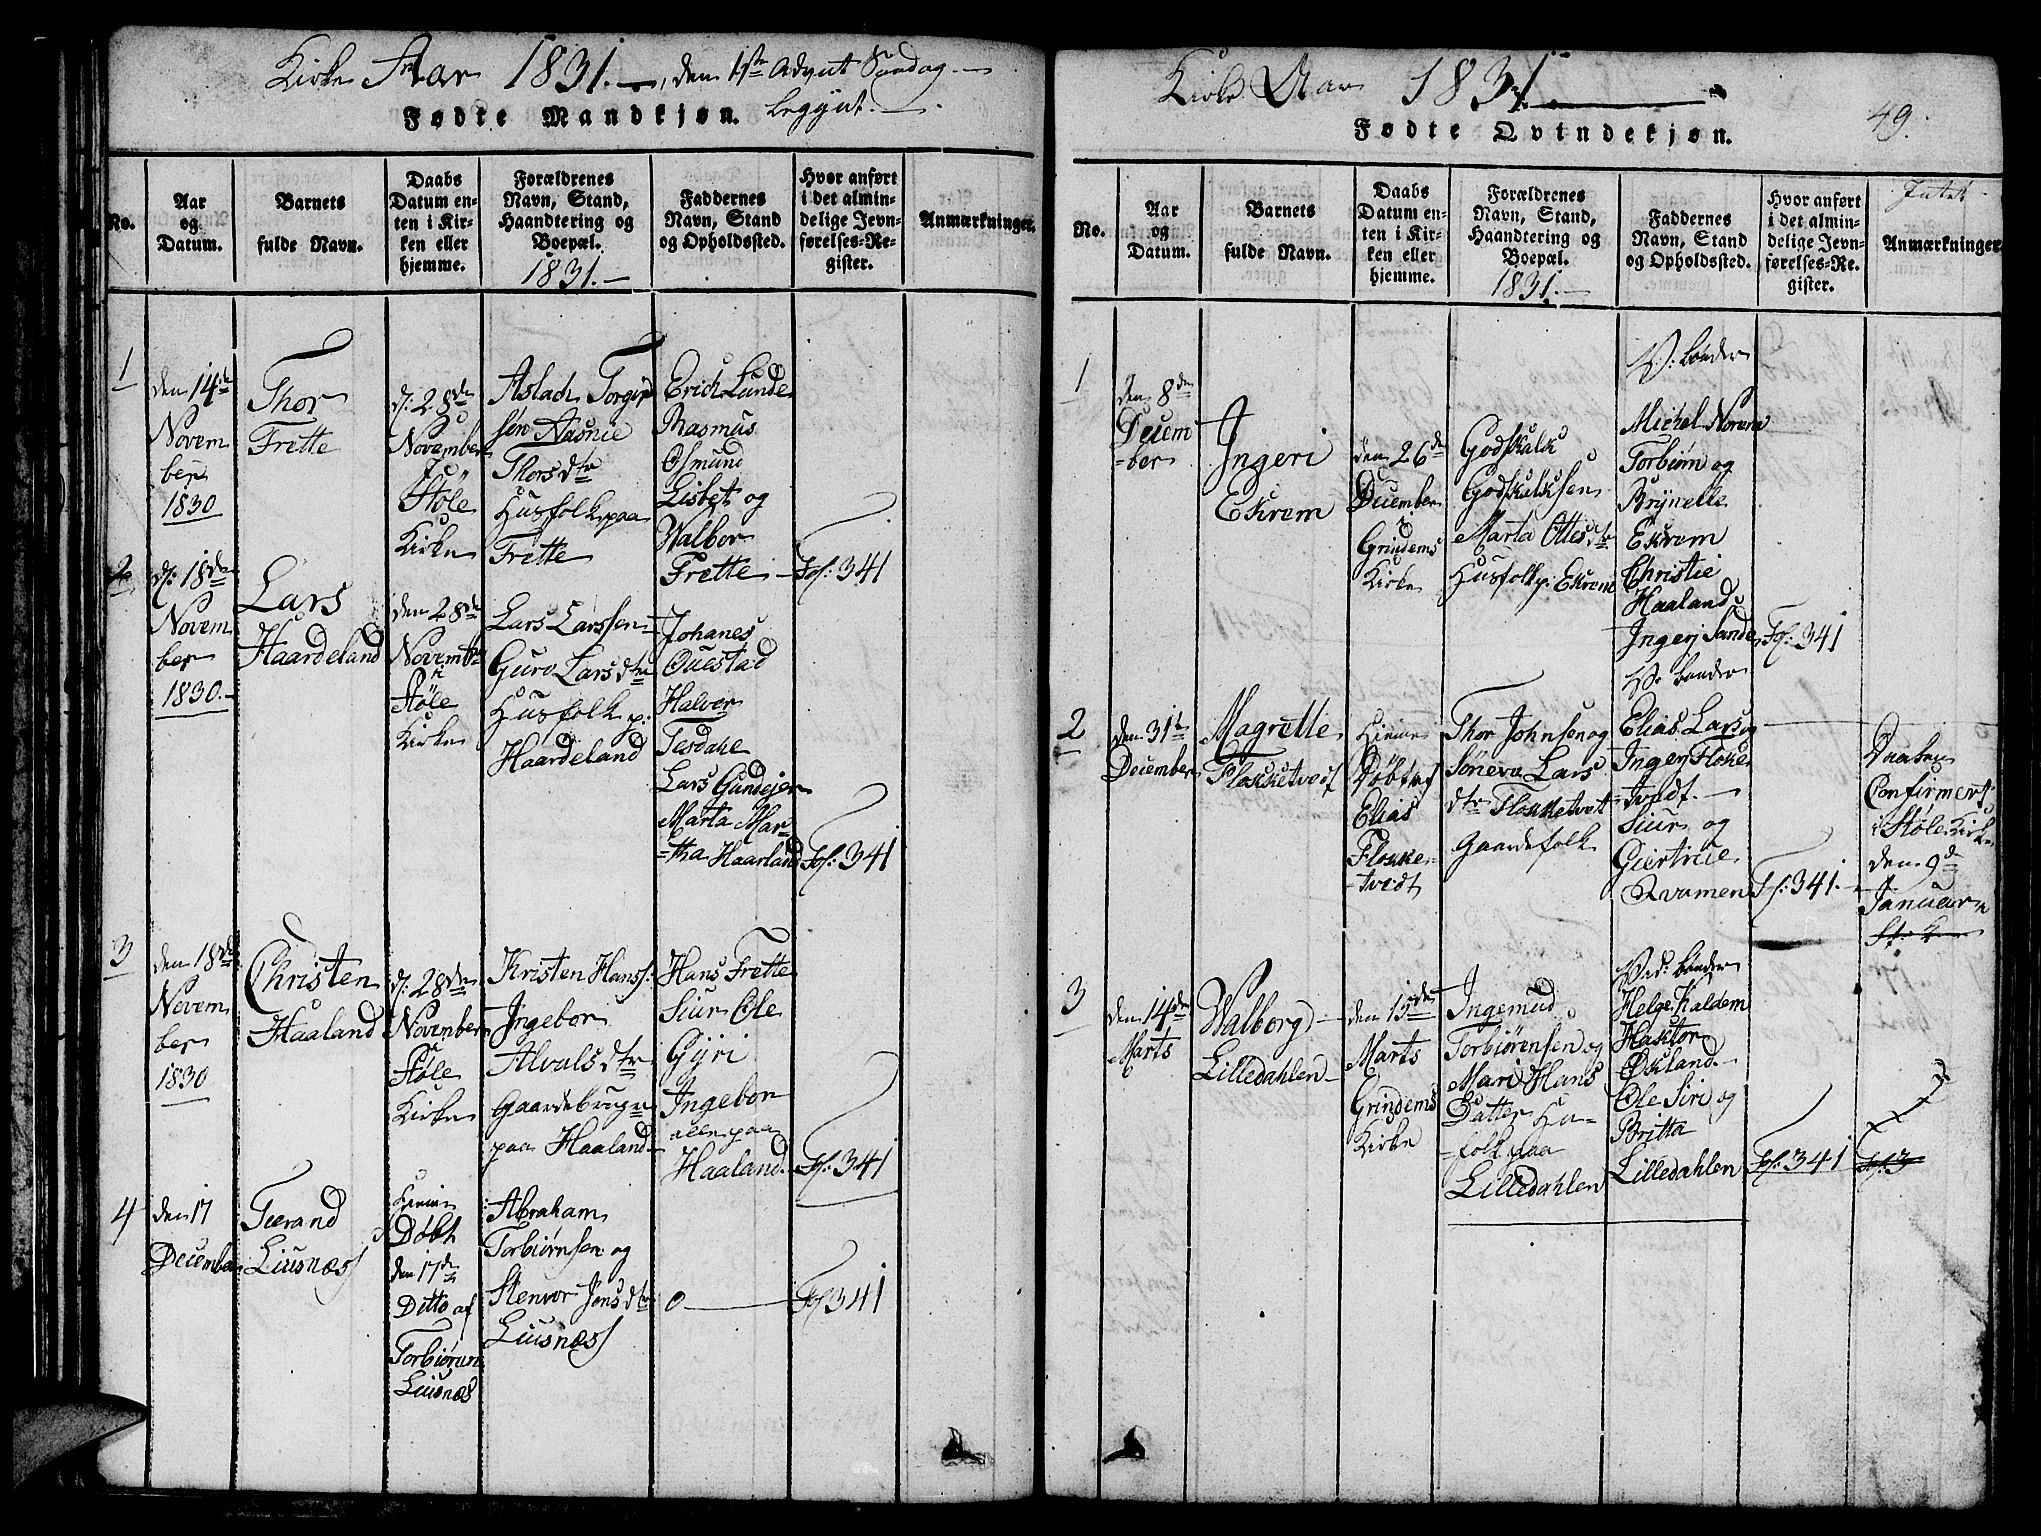 Kirke Aar 1831. —, den 1ste Advent Søndag —
Fødte Mandkjøn. begÿnt. —
No.
Aar
og
Datum.
Barnets
fulde Navn.
Daabs
Datum en-
ten i Kir-
ken eller
hjemme.
Forældrenes
Navn, Stand,
Haandtering og
Boepæl.
1831. —
Faddernes
Navn, Stand
og Opholdssted.
Hvor anført
i det almin-
delige Jevn-
førelses-Re-
gister.
Anmærkninger.
1
den 14de
Novem
ber
1830
Thor
Frette
d: 28de
November
Støle
Kirke
Aslach Torger
søn Aasnie
Thorsdtr
Husfolk paa
Frette
Erich Lunde
Rasmus
Osmund
Lisbet og
Walbor
Frette —
Fol: 341
2
d: 18de
Novem
ber
1830. —
Lars
Haardeland
den 28de
Novembr
i
Støle
Kirke
Lars Larssen
Guro Larsdtr
Husfolk p:
Haardeland
Johanes
Ouestad
Halvor
Tesdahe
Lars Gundejer
Marta Mar-
=tha Haarland
Fol: 341
3
den 18de
Novem
ber
1830
Christen
Haaland
d: 28de
November
i
Støle
Kirke
Kristen Hanss:
Ingebor
Alvalsdtr
Gaardebruger
paa Haaland
Hans Frette
Siur Ole
Gÿri
Ingebor
alle paa
Haaland —
Fol: 341
4
den 17
December
Teerand
Liusnæs
hiemme
Døbt
den 17de
Ditto af
Torbiørn
Liusnæs
Abraham
Torbiørnsen og
Stenvor Jønsdtr
Liusnæs
0 —
Fol 341
Kirke Aar 1831. —
Fødte Qvindekjøn.
49.
No.
Aar
og
Datum.
Barnets
fulde Navn.
Daabs
Datum en-
ten i Kir-
ken eller
hjemme.
Forældrenes
Navn, Stand,
Haandtering og
Boepæl.
1831. —
Faddernes
Navn, Stand
og Opholdssted.
Hvor anført
i det almin-
delige Jevn-
førelses-Re-
gister.
Anmærkninger
1
den 8de
Decem
=ber
Ingeri
Ekrem
den 26de
December
i
Grindems
Kirke
Godskalk
Godskalksen
Marta Ottesdtr
Husfolk p. Ekrem
V: bønder
Michel Norem
Torbiøn og
Brÿnelle
Ekrem
Christie
Haaland
Ingerj Sande
Fol: 341
2
den 31te
December
Magrette
Flokketvedt
hieme
Døbt af
Elias
Flokke-
=tvedt
Thor Johnsen og
Søneva Lars
dtr Flokketvet
Gaardefolk
V: bønder
Elias Lars og
Ingerj Flokke
=tvedt. —
Siur og
Giertrue
Qvamen
Fol: 341. —
Daaben
Confirmert
i Støle Kirke
den 9de
Januar
3
den 14de
Marts
Walborg
Lilledahlen
den 15de
Marts
Grindems
Kirke
Ingemud
Torbiørnsen og
Mari Hans
Datter Hu-
=folk paa
Lilledahlen
Ved: bønder
Helge Kaldem
Haktor
Økland. —
Ole Siri og
Britta
Lilledahlen
Fol: 341
Fol: 3